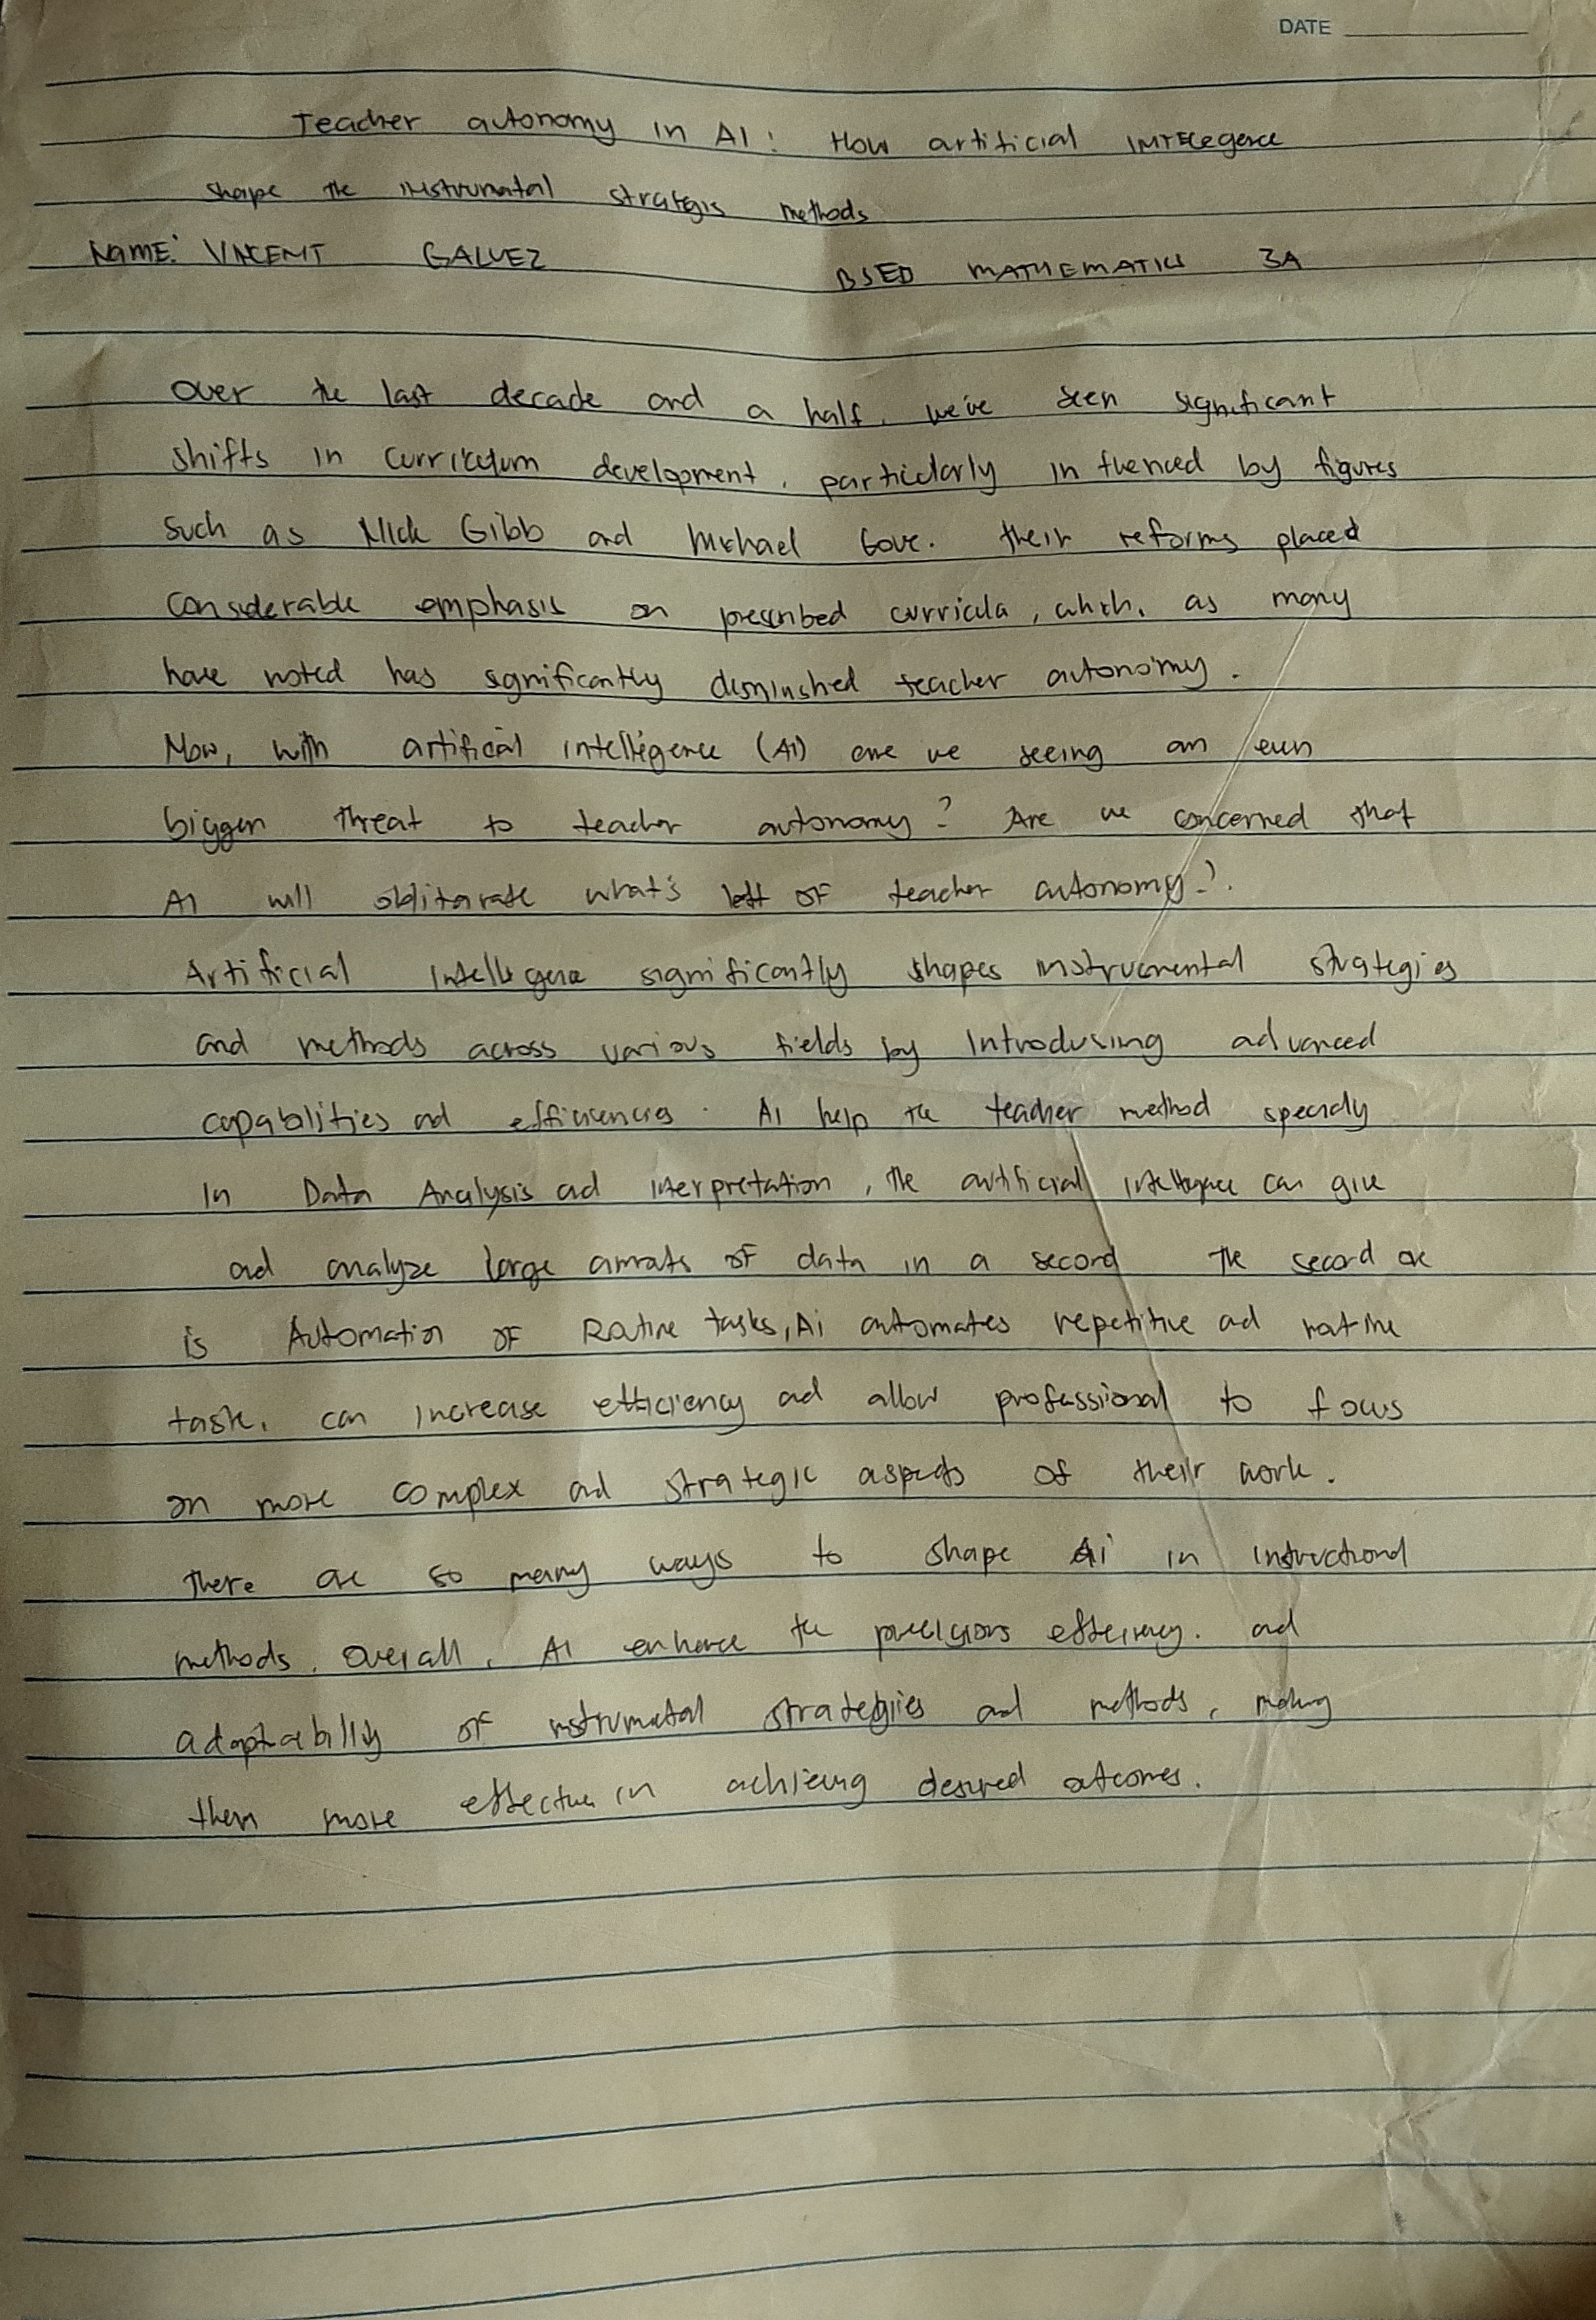 DATE
Teacher autonomy in AI: How artificial intelegence
shape the instrumatal strategis methods
Name: VINCENT GALVEZ BSED MATHEMATICS 3A
Over the last decade and a half, we've seen significant
shifts in curriculum development, particularly influenced by figures
such as Nick Gibb and Michael Gove. Their reforms placed
considerable emphasis on prescribed curricula, which, as many
have noted has significantly diminished teacher autonomy.
Now, with artificial intelligence (AI) are we seeing an even
bigger threat to teacher autonomy? Are we concerned that
AI will obliterate what's left of teacher autonomy?.
Artificial Intellegence significantly shapes instrumental strategies
and methods across various fields by Introdusing advanced
capabilities ad efficiencies. AI help the teacher method specialy
In Data Analysis ad interpretation, the artificial intellegence can give
ad analyze large amounts of data in a second The second one
is Automation of Routine tasks, Ai automates repetitive ad routine
task, can increase efficiency ad allow professional to focus
on more complex ad strategic aspects of their work.
There are so many ways to shape Ai in instructional
methods. Overall, AI enhance the precisions efficiency. ad
adaptability of instrumetal strategiies and methods, making
them more effective in achieving desired outcomes.